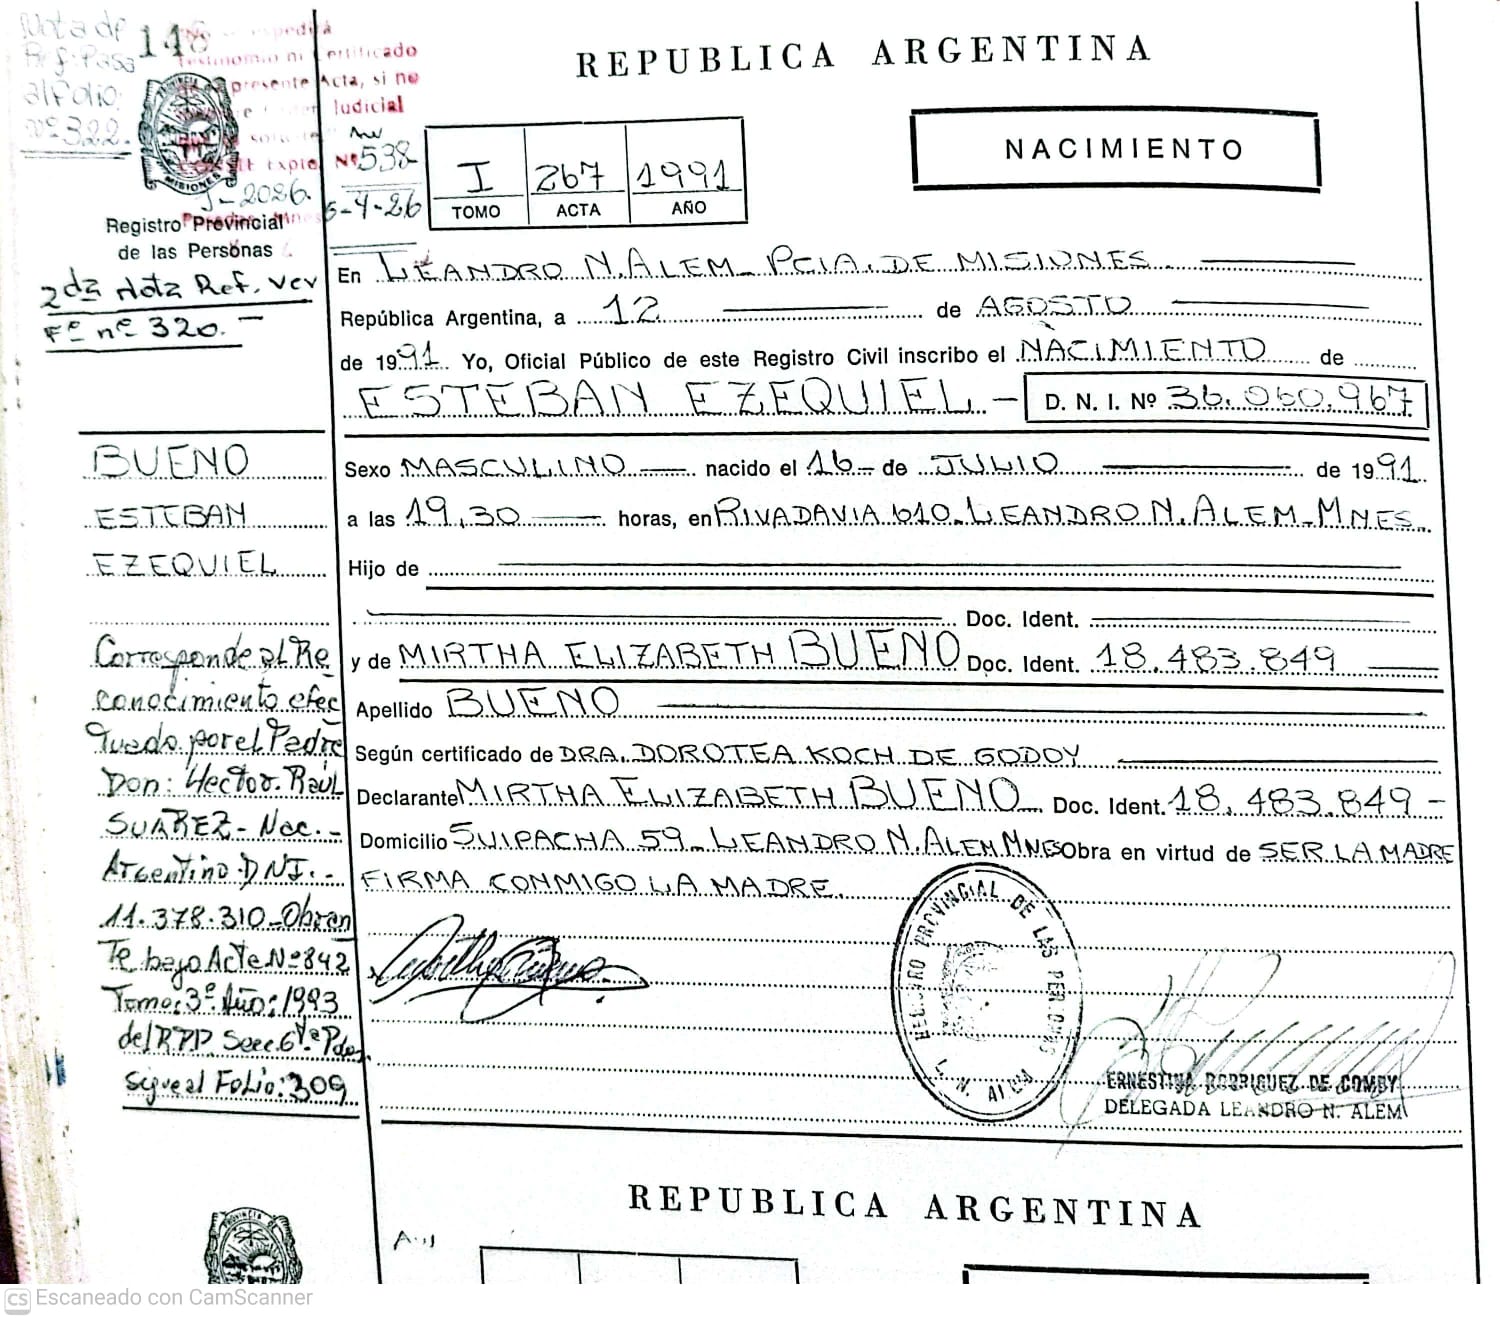 Nota de
Ref: Pasa
al Folio:
nº 322.
146
No se expedirá
Testimonio ni Certificado
presente Acta, si no
Judicial
Expte. Nº 538-
J-2026.
5-4-26
MISIONES
Registro Provincial
de las Personas
2da Nota Ref. ver
Fº nº 320.-
REPUBLICA ARGENTINA
NACIMIENTO
I 267 1991
TOMO ACTA AÑO
En LEANDRO N. ALEM_ PCIA. DE MISIONES
República Argentina, a 12 de AGOSTO
de 1991. Yo, Oficial Público de este Registro Civil inscribo el NACIMIENTO de
ESTEBAN EZEQUIEL - D. N. I. Nº 36.060.967
Sexo MASCULINO nacido el 16 de JULIO de 1991
a las 19,30 horas, en RIVADAVIA 610_ LEANDRO N. ALEM_MNES_
Hijo de
Doc. Ident.
y de MIRTHA ELIZABETH BUENO Doc. Ident. 18.483.849
Apellido BUENO
Según certificado de DRA. DOROTEA KOCH DE GODOY
Declarante MIRTHA ELIZABETH BUENO Doc. Ident. 18.483.849 -
Domicilio SUIPACHA 59_ LEANDRO N. ALEM MNES Obra en virtud de SER LA MADRE
FIRMA CONMIGO LA MADRE.
BUENO
ESTEBAN
EZEQUIEL
Corresponde al Re
conocimiento efec
tuado por el Padre
Don: Hector Raúl
SUAREZ- Nac.-
Argentino DNI.-
11.378.310_Obran
Te bajo Acta Nº 842
Tomo: 3º Año: 1993
del RPP. Secc. 6ta Pdas.
Sigue al Folio: 309
REGISTRO PROVINCIAL DE LAS PERSONAS
L. N. ALEM
ERNESTINA RODRIGUEZ DE COMBY
DELEGADA LEANDRO N. ALEM
REPUBLICA ARGENTINA
PROVINCIA DE
CS Escaneado con CamScanner